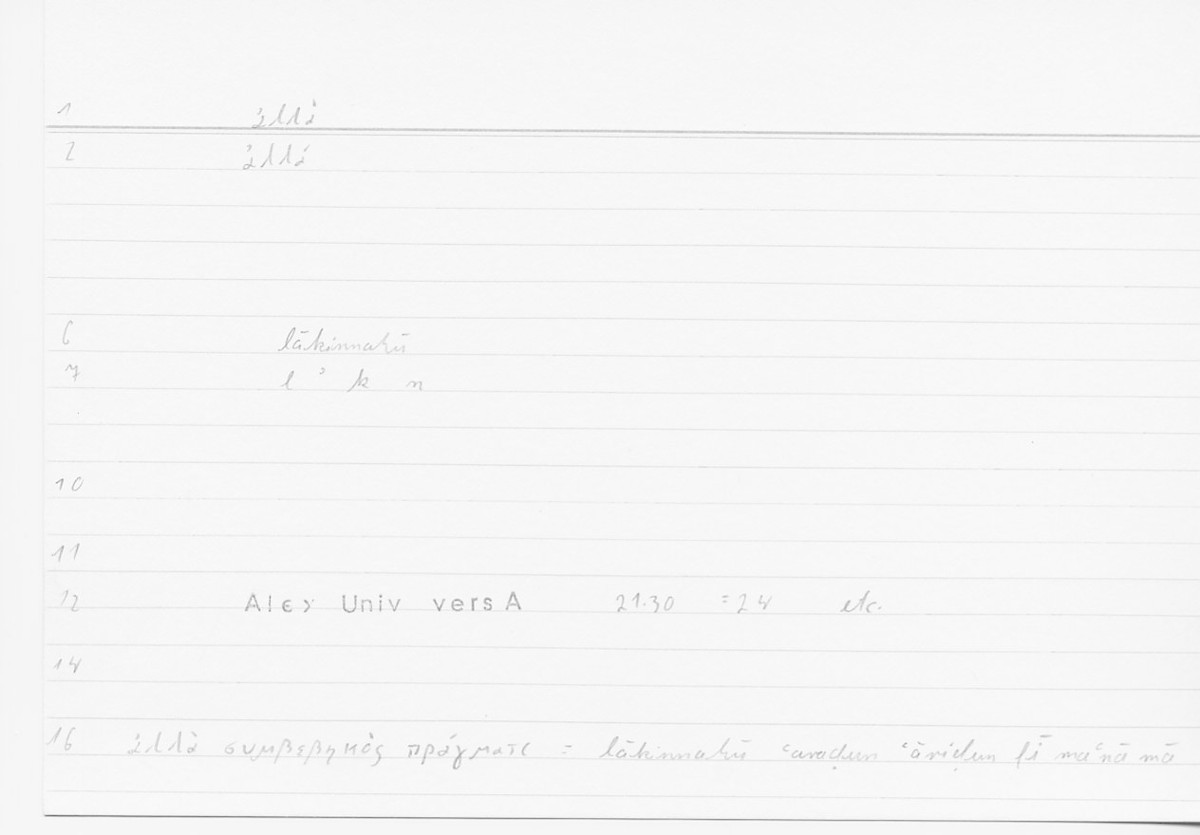 1 ἀλλὰ
2 ἀλλά
6 lākinnahū
7 l ʾ k n
10
11
12 Alex Univ vers A 21.30 =24 etc.
14
16 ἀλλὰ συμβεβηκὸς πράγματι = lākinnahū ʿaraḍun ʿāriḍun fī maʿnā mā